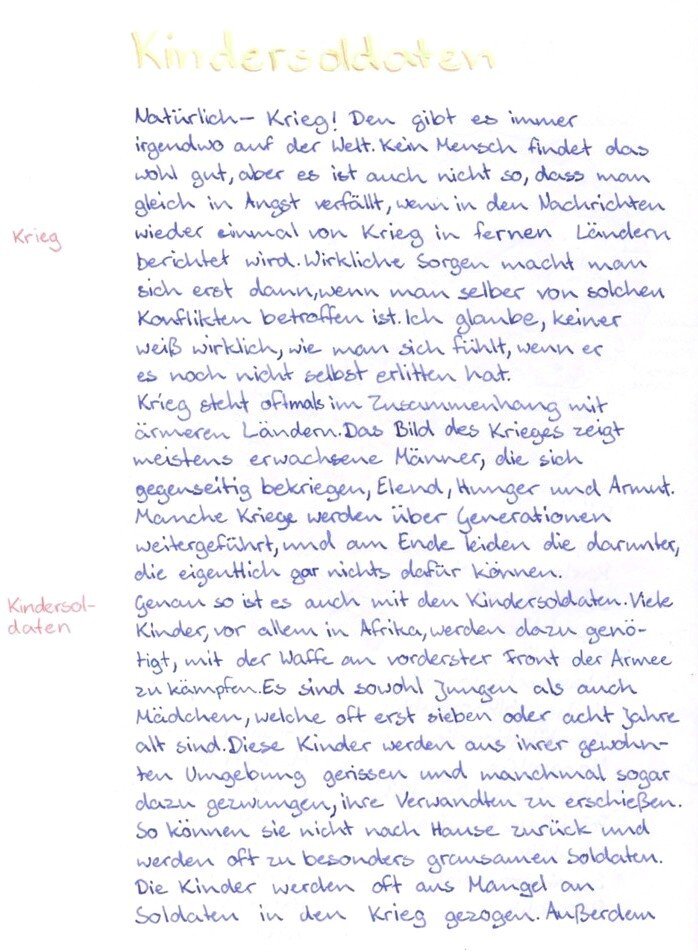 Kindersoldaten
Natürlich – Krieg! Den gibt es immer
irgendwo auf der Welt. Kein Mensch findet das
wohl gut, aber es ist auch nicht so, dass man
gleich in Angst verfällt, wenn in den Nachrichten
Krieg
wieder einmal von Krieg in fernen Ländern
berichtet wird. Wirkliche Sorgen macht man
sich erst dann, wenn man selber von solchen
Konflikten betroffen ist. Ich glaube, keiner
weiß wirklich, wie man sich fühlt, wenn er
es noch nicht selbst erlitten hat.
Krieg steht oftmals im Zusammenhang mit
ärmeren Ländern. Das Bild des Krieges zeigt
meistens erwachsene Männer, die sich
gegenseitig bekriegen, Elend, Hunger und Armut.
Manche Kriege werden über Generationen
weitergeführt, und am Ende leiden die darunter,
die eigentlich gar nichts dafür können.
Kindersol-
daten
Genau so ist es auch mit den Kindersoldaten. Viele
Kinder, vor allem in Afrika, werden dazu genö-
tigt, mit der Waffe an vorderster Front der Armee
zu kämpfen. Es sind sowohl Jungen als auch
Mädchen, welche oft erst sieben oder acht Jahre
alt sind. Diese Kinder werden aus ihrer gewohn-
ten Umgebung gerissen und manchmal sogar
dazu gezwungen, ihre Verwandten zu erschießen.
So können sie nicht nach Hause zurück und
werden oft zu besonders grausamen Soldaten.
Die Kinder werden oft aus Mangel an
Soldaten in den Krieg gezogen. Außerdem